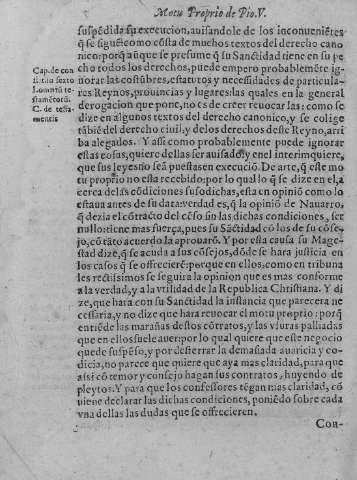 Motu Proprio de Pio. V.
suspẽdida su execucion, auisandole de los inconueniẽtes
q̃ se siguẽ: como cõsta de muchos textos del derecho cano
nico: porq̃ aũque se presume q̃ su Sãctidad tiene en su pe
cho todos los derechos, puede empero probablemẽte ig-
norar las costũbres, estatutos y necessidades de particula-
res Reynos, prouincias y lugares: las quales en la general
derogacion que pone, no es de creer reuocar las: como se
dize en algunos textos del derecho canonico, y se colige
tãbiẽ del derecho ciuil, y de los derechos deste Reyno, arri
ba alegados. Y assi como probablemente puede ignorar
estas cosas, quiere dellas ser auisado, y en el interim quiere,
que sus leyes no seã puestas en execuciõ. De arte, q̃ este mo
tu proprio no esta recebido: por lo qual lo q̃ se dize en el, a
cerca de las cõdiciones susodichas, esta en opiniõ como lo
estaua antes de su data: verdad es, q̃ la opiniõ de Nauarro,
q̃ dezia el cõtracto del cẽso sin las dichas condiciones, ser
nullo: tiene mas fuerça, pues su Sãctidad cõ los de su cõse-
jo, cõ tãto acuerdo la aprouarõ. Y por esta causa su Mage-
stad dize, q̃ se acuda a sus cõsejos, dõde se hara justicia en
los casos q̃ se offrecierẽ: porque en ellos, como en tribuna
les rectissimos se seguira la opinion que es mas conforme
a la verdad, y a la vtilidad de la Republica Christiana. Y di
ze, que hara con su Sanctidad la instancia que parecera ne
cessaria, y no dize que hara reuocar el motu proprio: porq̃
entiẽde las marañas destos cõtratos, y las vsuras palliadas
que en ellos suele auer: por lo qual quiere que este negocio
quede suspẽso, y por desterrar la demasiada auaricia y co-
dicia, no parece que quiere que aya mas claridad, para que
assi cõ temor y consejo hagan sus contratos, huyendo de
pleytos. Y para que los confessores tẽgan mas claridad, cõ
uiene declarar las dichas condiciones, poniẽdo sobre cada
vna dellas las dudas que se offrecieren.
Con-
Cap. de con
sti. in sexto
C. de testa-
mentis